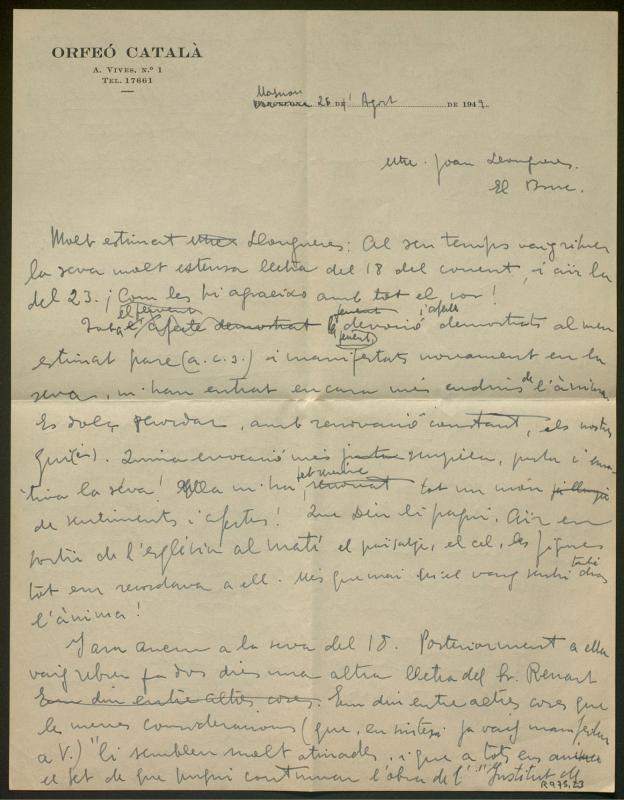 ORFEÓ CATALÀ
A. Vives, N.º 1
Tel. 17661
26 de Agost de 1949.
Mtre. Joan Llongueres.
El Bruc.
Molt estimat Mtre Llongueres: Al seu temps vaig rebre
la seva molt extensa lletra del 18 del corrent, i ahir la
del 23. ¡Com les hi agraeixo amb tot el cor!
el fervent
afecte demostrat la devoció demostrats al meu
estimat pare (a.c.s.) i manifestats novament en la
seva, m'han entrat encara més endins de l'ànima.
Es dolç recordar, amb renovació constant, els nostres
Quina evocació més justa i
la seva! Ella m'ha tot un món
de sentiments i afectes! Que Deu li pagui. Ahir en
sortir de l'església al matí el paisatge, el cel, les figures
tot em recordava a ell. Més que mai el vaig sentir dins
l'ànima!
I ara anem a la seva del 18. Posteriorment a ella
vaig rebre fa dos dies una altra lletra del Sr. Renart
Em diu entre altres coses. Em diu entre altres coses que
les meves consideracions (que, en síntesi ja vaig manifestar
a V.) "li semblen molt atinades, i que a tots ens
el fet de que pugui continuar l'obra de l'"Institut
R973,23